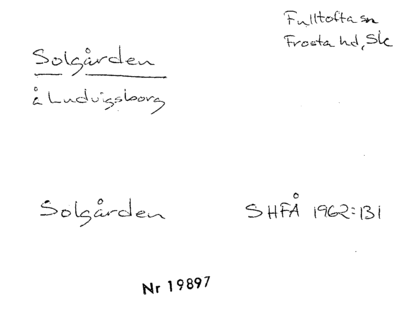 Fulltofta sn
Frosta hd, Sk
Solgården
å Ludvigsborg
Solgården SHFÅ 1962:131
Nr 19897